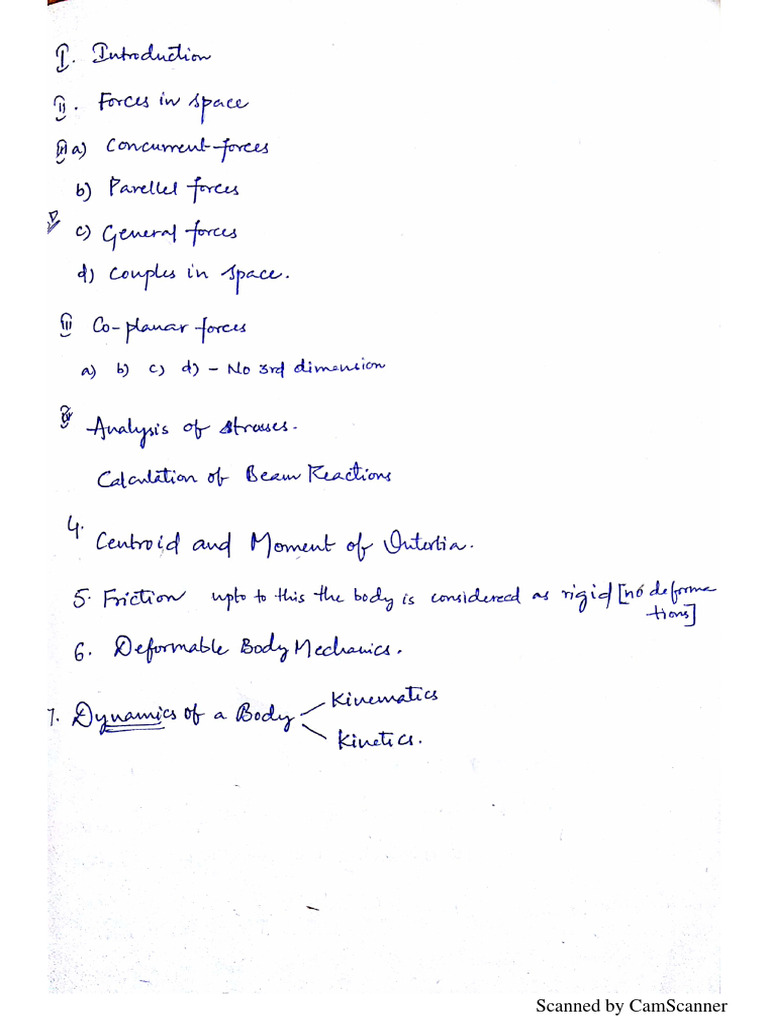 I. Introduction
II. Forces in space
a) Concurrent forces
b) Parellel forces
c) General forces
d) Couples in space.
III Co-planar forces
a) b) c) d) - No 3rd dimension
Analysis of stresses.
Calculation of Beam Reactions
4. Centroid and Moment of Intertia.
5. Friction upto to this the body is considered as rigid [no deforma
tions]
6. Deformable Body Mechanics.
7. Dynamics of a Body Kinematics
Kinetics.
Scanned by CamScanner